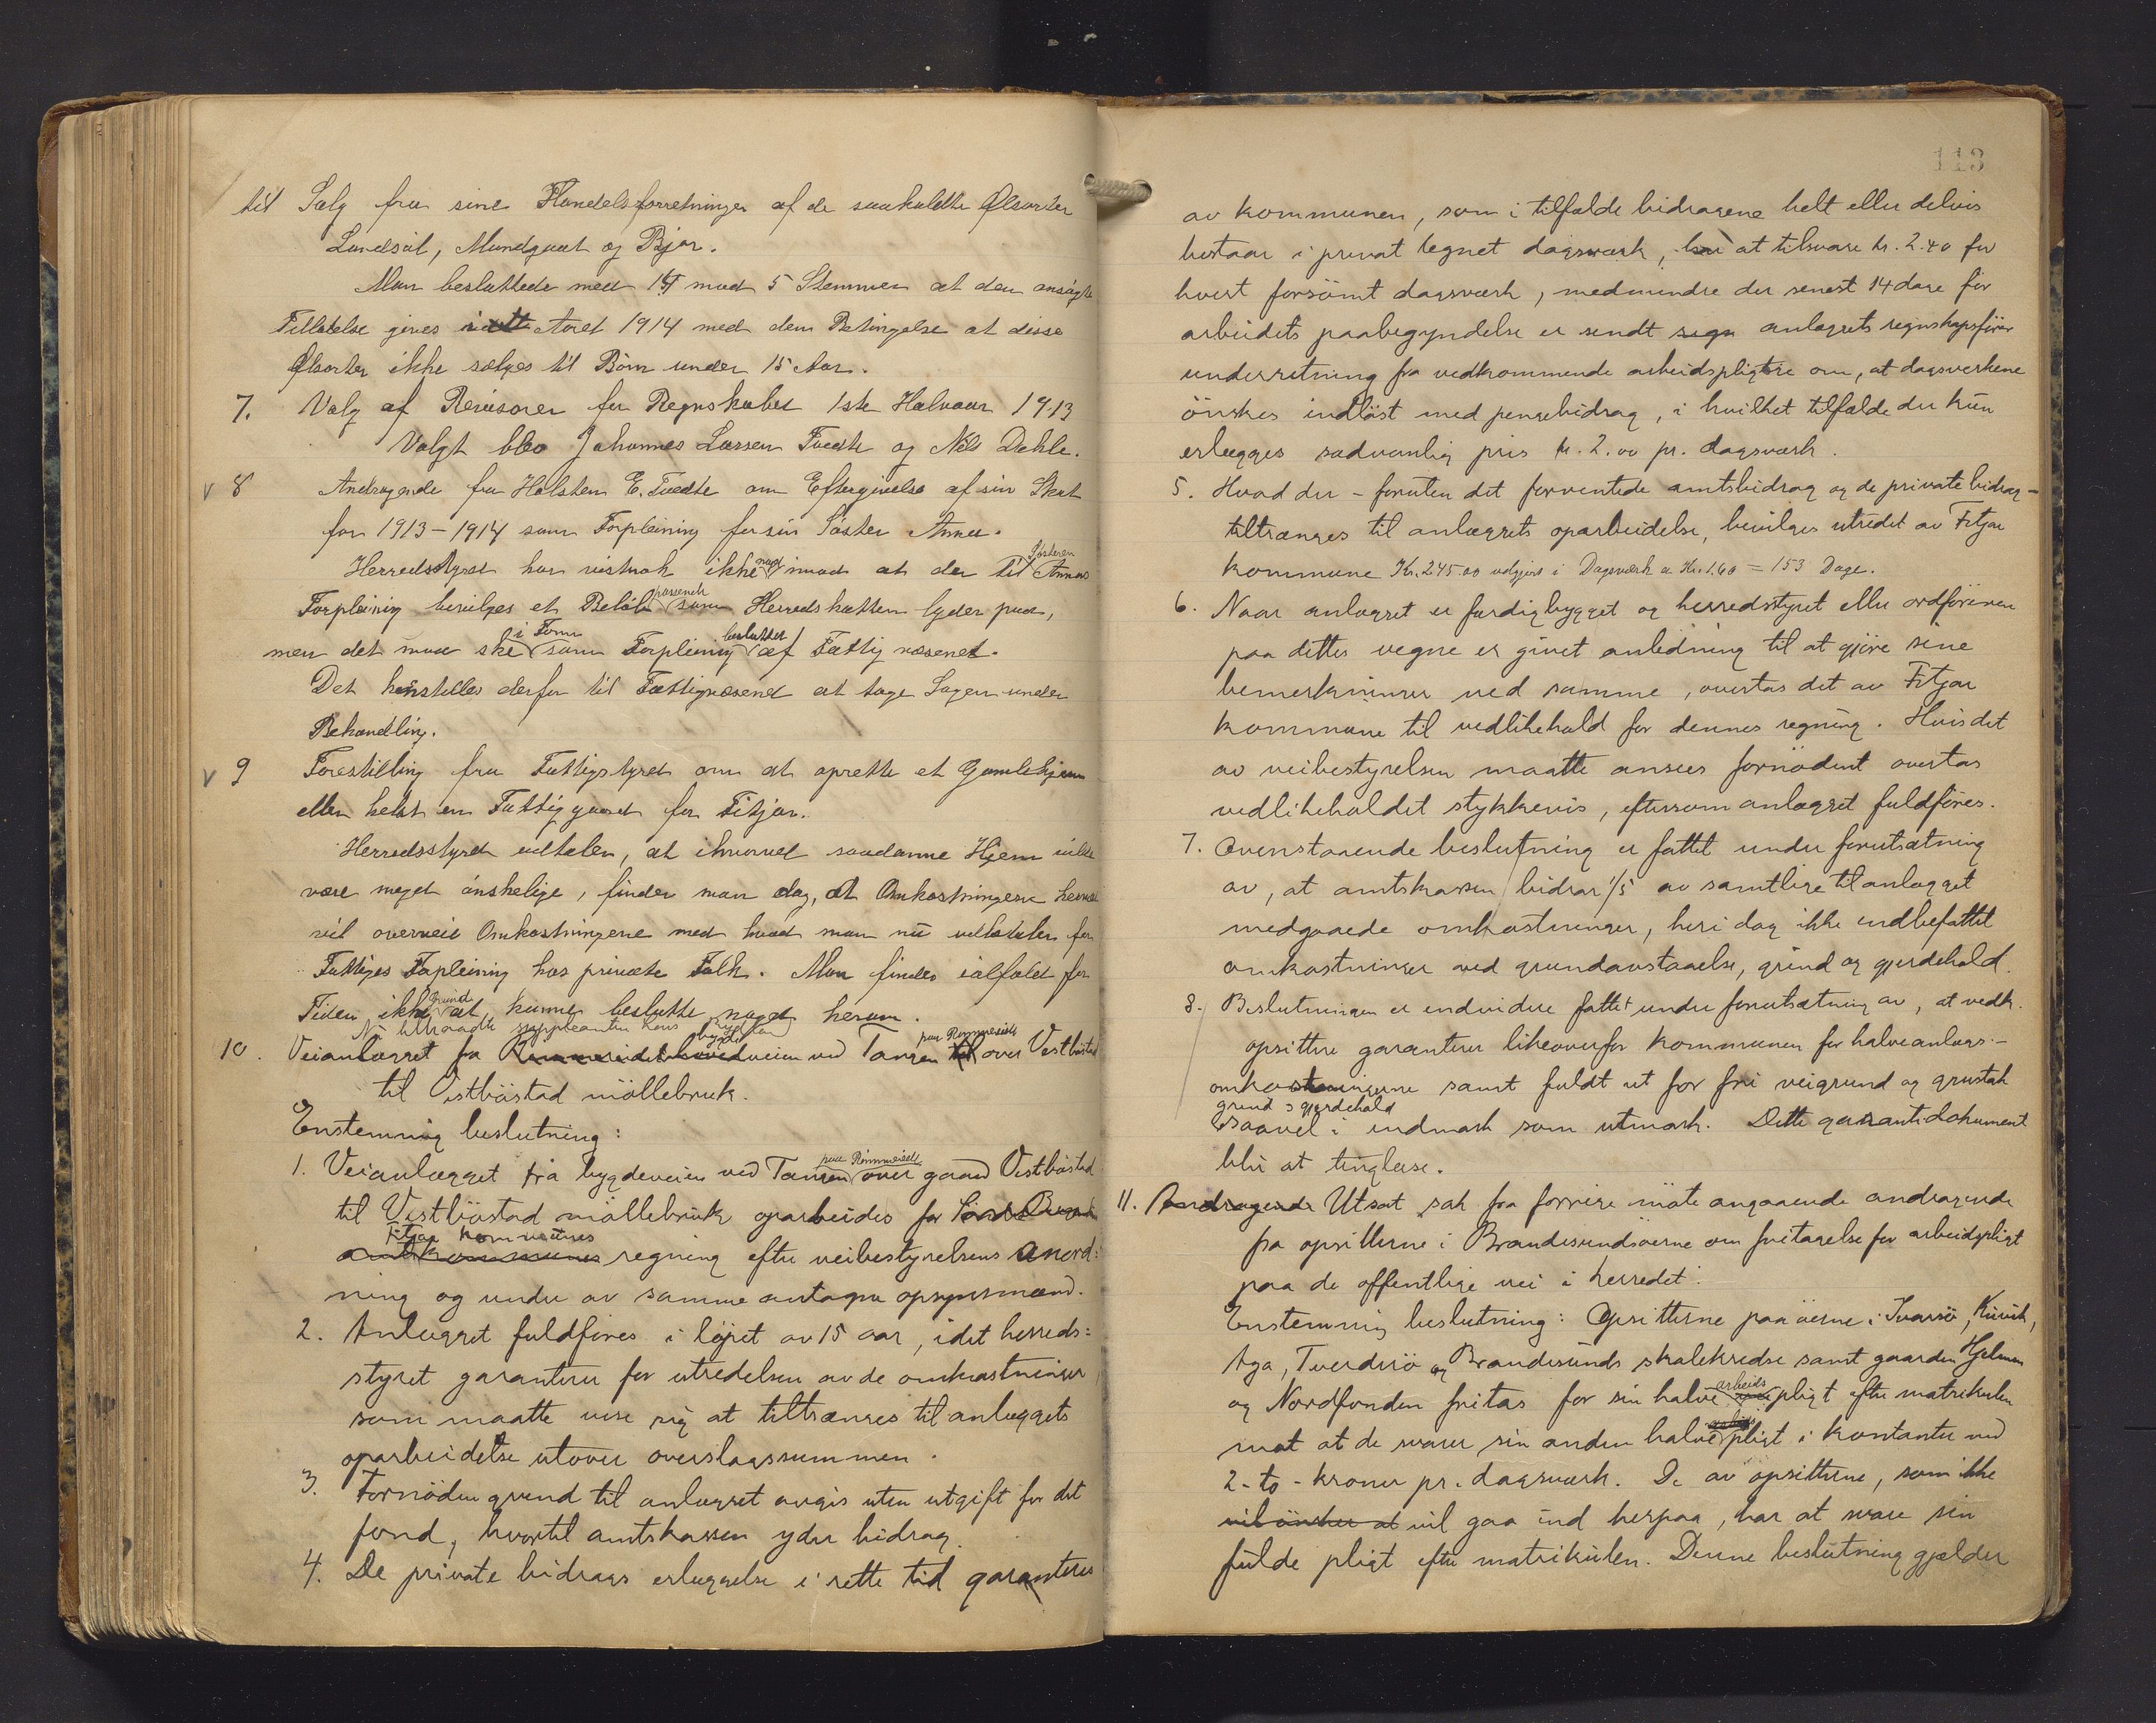 til Salg fra sine Handelsforretninger af de saakaldte Ølsorter
Landsøl, Mundgodt og Bjor.
Man besluttede med 14 mod 5 Stemmer at den ansøgte
Tilladelse gives Aaret 1914 med den Betingelse at disse
Ølsorter ikke sælges til Børn under 15 Aar.
7. Valg af Revisorer for Regnskabet 1ste Halvaar 1913
Valgt blev Johannes Larsen Tvedte og Nils Dahle.
v 8 Andragende fra Holsten E. Tvedte om Eftergivelse af sin Skat
for 1913-1914 som Forpleining for sin Søster Anna.
Herredsstyret har vistnok ikke noget imod at der til Søsteren Annas
Forpleining bevilges et Beløb passende som Herredskatten lyder paa,
men det maa ske i Form som Forpleining besluttet af Fattigvæsenet.
Det henstilles derfor til Fattigvæsenet at tage Sagen under
Behandling.
v 9 Forestilling fra Fattigstyret om at oprette et Gamlehjem
eller helst en Fattiggaard for Fitjar.
Herredsstyret udtaler, at ihvorvel saadanne Hjem vilde
være meget ønskelige, finder man dog, at Omkostningerne herved
vil overveie Omkostningerne med hvad man nu udbetaler for
Fattiges Forpleining hos private Folk. Man finder ialfald for
Tiden ikke Grund at kunne beslutte noget herom.
Nu tiltraadte suppleanten Hans Rydland
10. Veianlægget fra bygdeveien ved Tangen paa Rimmereide over Vestbøstad
til Vestbøstad møllebruk.
Enstemmig beslutning:
1. Veianlægget fra bygdeveien ved Tangen paa Rimmereide over gaard Vestbøstad
til Vestbøstad møllebruk oparbeides for Søndre Bergenhus
Fitjar kommunes
amtkommunes regning efter veibestyrelsens anord:
ning og under av samme antagne opsynsmænd.
2. Anlægget fuldføres i løpet av 15 aar, idet herreds:
styret garanterer for utredelsen av de omkostninger
som maatte vise sig at tiltrænges til anlæggets
oparbeidelse utover overslagssummen.
3. Fornøden grund til anlægget avgis uten utgift for det
fond, hvortil amtskassen yder bidrag.
4. De private bidrags erlæggelse i rette tid garanteres
113
av kommunen, som i tilfælde bidragene helt eller delvis
bestaar i privat tegnet dagsværk, har at tilsvare kr. 2.40 for
hvert forsømt dagsværk, medmindre der senest 14 dage før
arbeidets paabegyndelse er sendt anlægets regnskapsfører
underretning fra vedkommende arbeidspligtige om, at dagsverkene
ønskes indløst med pengebidrag, i hvilket tilfælde der kun
erlægges sædvanlig pris kr. 2.00 pr. dagsværk.
5. Hvad der - foruten det forventede amtsbidrag og de private bidrag -
tiltrænges til anlæggets oparbeidelse, bevilges utredet av Fitjar
kommune Kr. 245.00 udgjør i Dagsværk a Kr. 1.60 = 153 Dage.
6. Naar anlægget er færdigbygget og herredsstyret eller ordføreren
paa dettes vegne er givet anledning til at gjøre sine
bemerkninger ved samme, overtas det av Fitjar
kommune til vedlikehold for dennes regning. Hvis det
av veibestyrelsen maatte ansees fornødent overtas
vedlikeholdet stykkevis, eftersom anlægget fuldføres.
7. Ovenstaaende beslutning er fattet under forutsætning
av, at amtskassen bidrar 1/5 av samtlige til anlægget
medgaaede omkostninger, heri dog ikke indbefattet
omkostninger ved grundavstaaelse, grind og gjerdehold.
8. Beslutningen er endvidere fattet under forutsætning av, at vedk.
opsittere garanterer likeoverfor kommunen for halve anlægs-
omkostningerne samt fuldt ut for fri veigrund og grustak
grind & gjerdehold
saavel i indmark som utmark. Dette garantidokument
blir at tinglæse.
11. Andragende Utsat sak fra forrige møte angaaende andragende
fra opsitterne i Brandesundsøerne om fritagelse for arbeidspligt
paa de offentlige vei i herredet.
Enstemmig beslutning: Opsitterne paa øerne i Ivarsø, Kuvik,
Aga, Tverderø og Brandesunds skolekredse samt gaarden Hjelmen
og Nordfonden fritas for sin halve arbeids pligt efter matrikulen
mot at de svarer sin anden halve pligt i kontanter med
2-to-kroner pr. dagsværk. De av opsitterne, som ikke
vil ønsker at vil gaa ind herpaa, har at svare sin
fulde pligt efter matrikulen. Denne beslutning gjælder